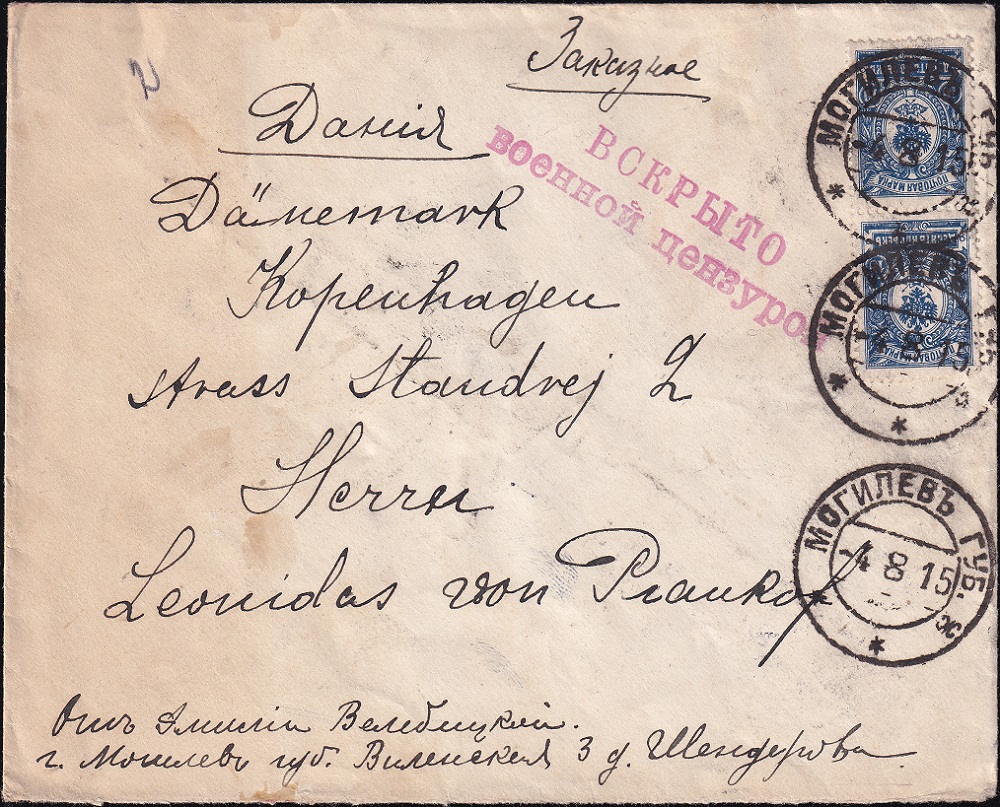 Заказное
Данія
Dänemark
Kopenhagen
strass Standvej 2
Herrn
Leonidas von
ВСКРЫТО
военной цензурой
ПОЧТОВАЯ МАРКА
МОГИЛЕВЪ ГУБ.
4 8 15
МОГИЛЕВЪ ГУБ.
4 8 15
МОГИЛЕВЪ ГУБ. ж
4 8 15
Отъ Эмиліи Велебицкой.
г. Могилевъ губ. Виленская 3 д. Шендерова